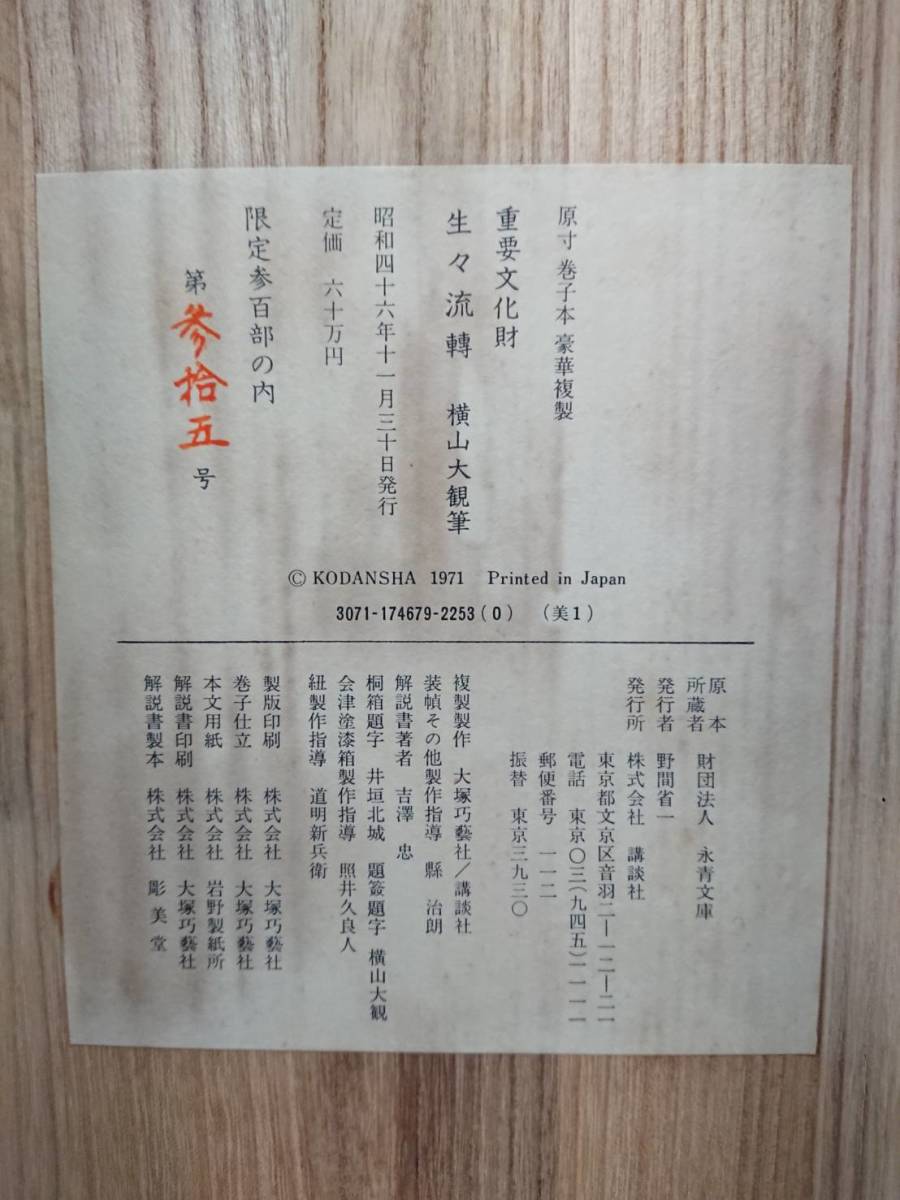 原寸 巻子本 豪華複製
重要文化財
生々流轉 横山大観筆
昭和四十六年十一月三十日発行
定価 六十万円
限定参百部の内
第参拾五号
© KODANSHA 1971 Printed in Japan
3071-174679-2253(0) (美1)
原本所蔵者 財団法人 永青文庫
発行者 野間省一
発行所 株式会社 講談社
東京都文京区音羽二―一二―二一
電話 東京〇三(九四五)一一一一
郵便番号 一一二
振替 東京三九三〇
複製製作 大塚巧藝社/講談社
装幀その他製作指導 縣 治朗
解説書著者 吉澤 忠
桐箱題字 井垣北城 題簽題字 横山大観
会津塗漆箱製作指導 照井久良人
紐製作指導 道明新兵衛
製版印刷 株式会社 大塚巧藝社
巻子仕立 株式会社 大塚巧藝社
本文用紙 株式会社 岩野製紙所
解説書印刷 株式会社 大塚巧藝社
解説書製本 株式会社 彫美堂